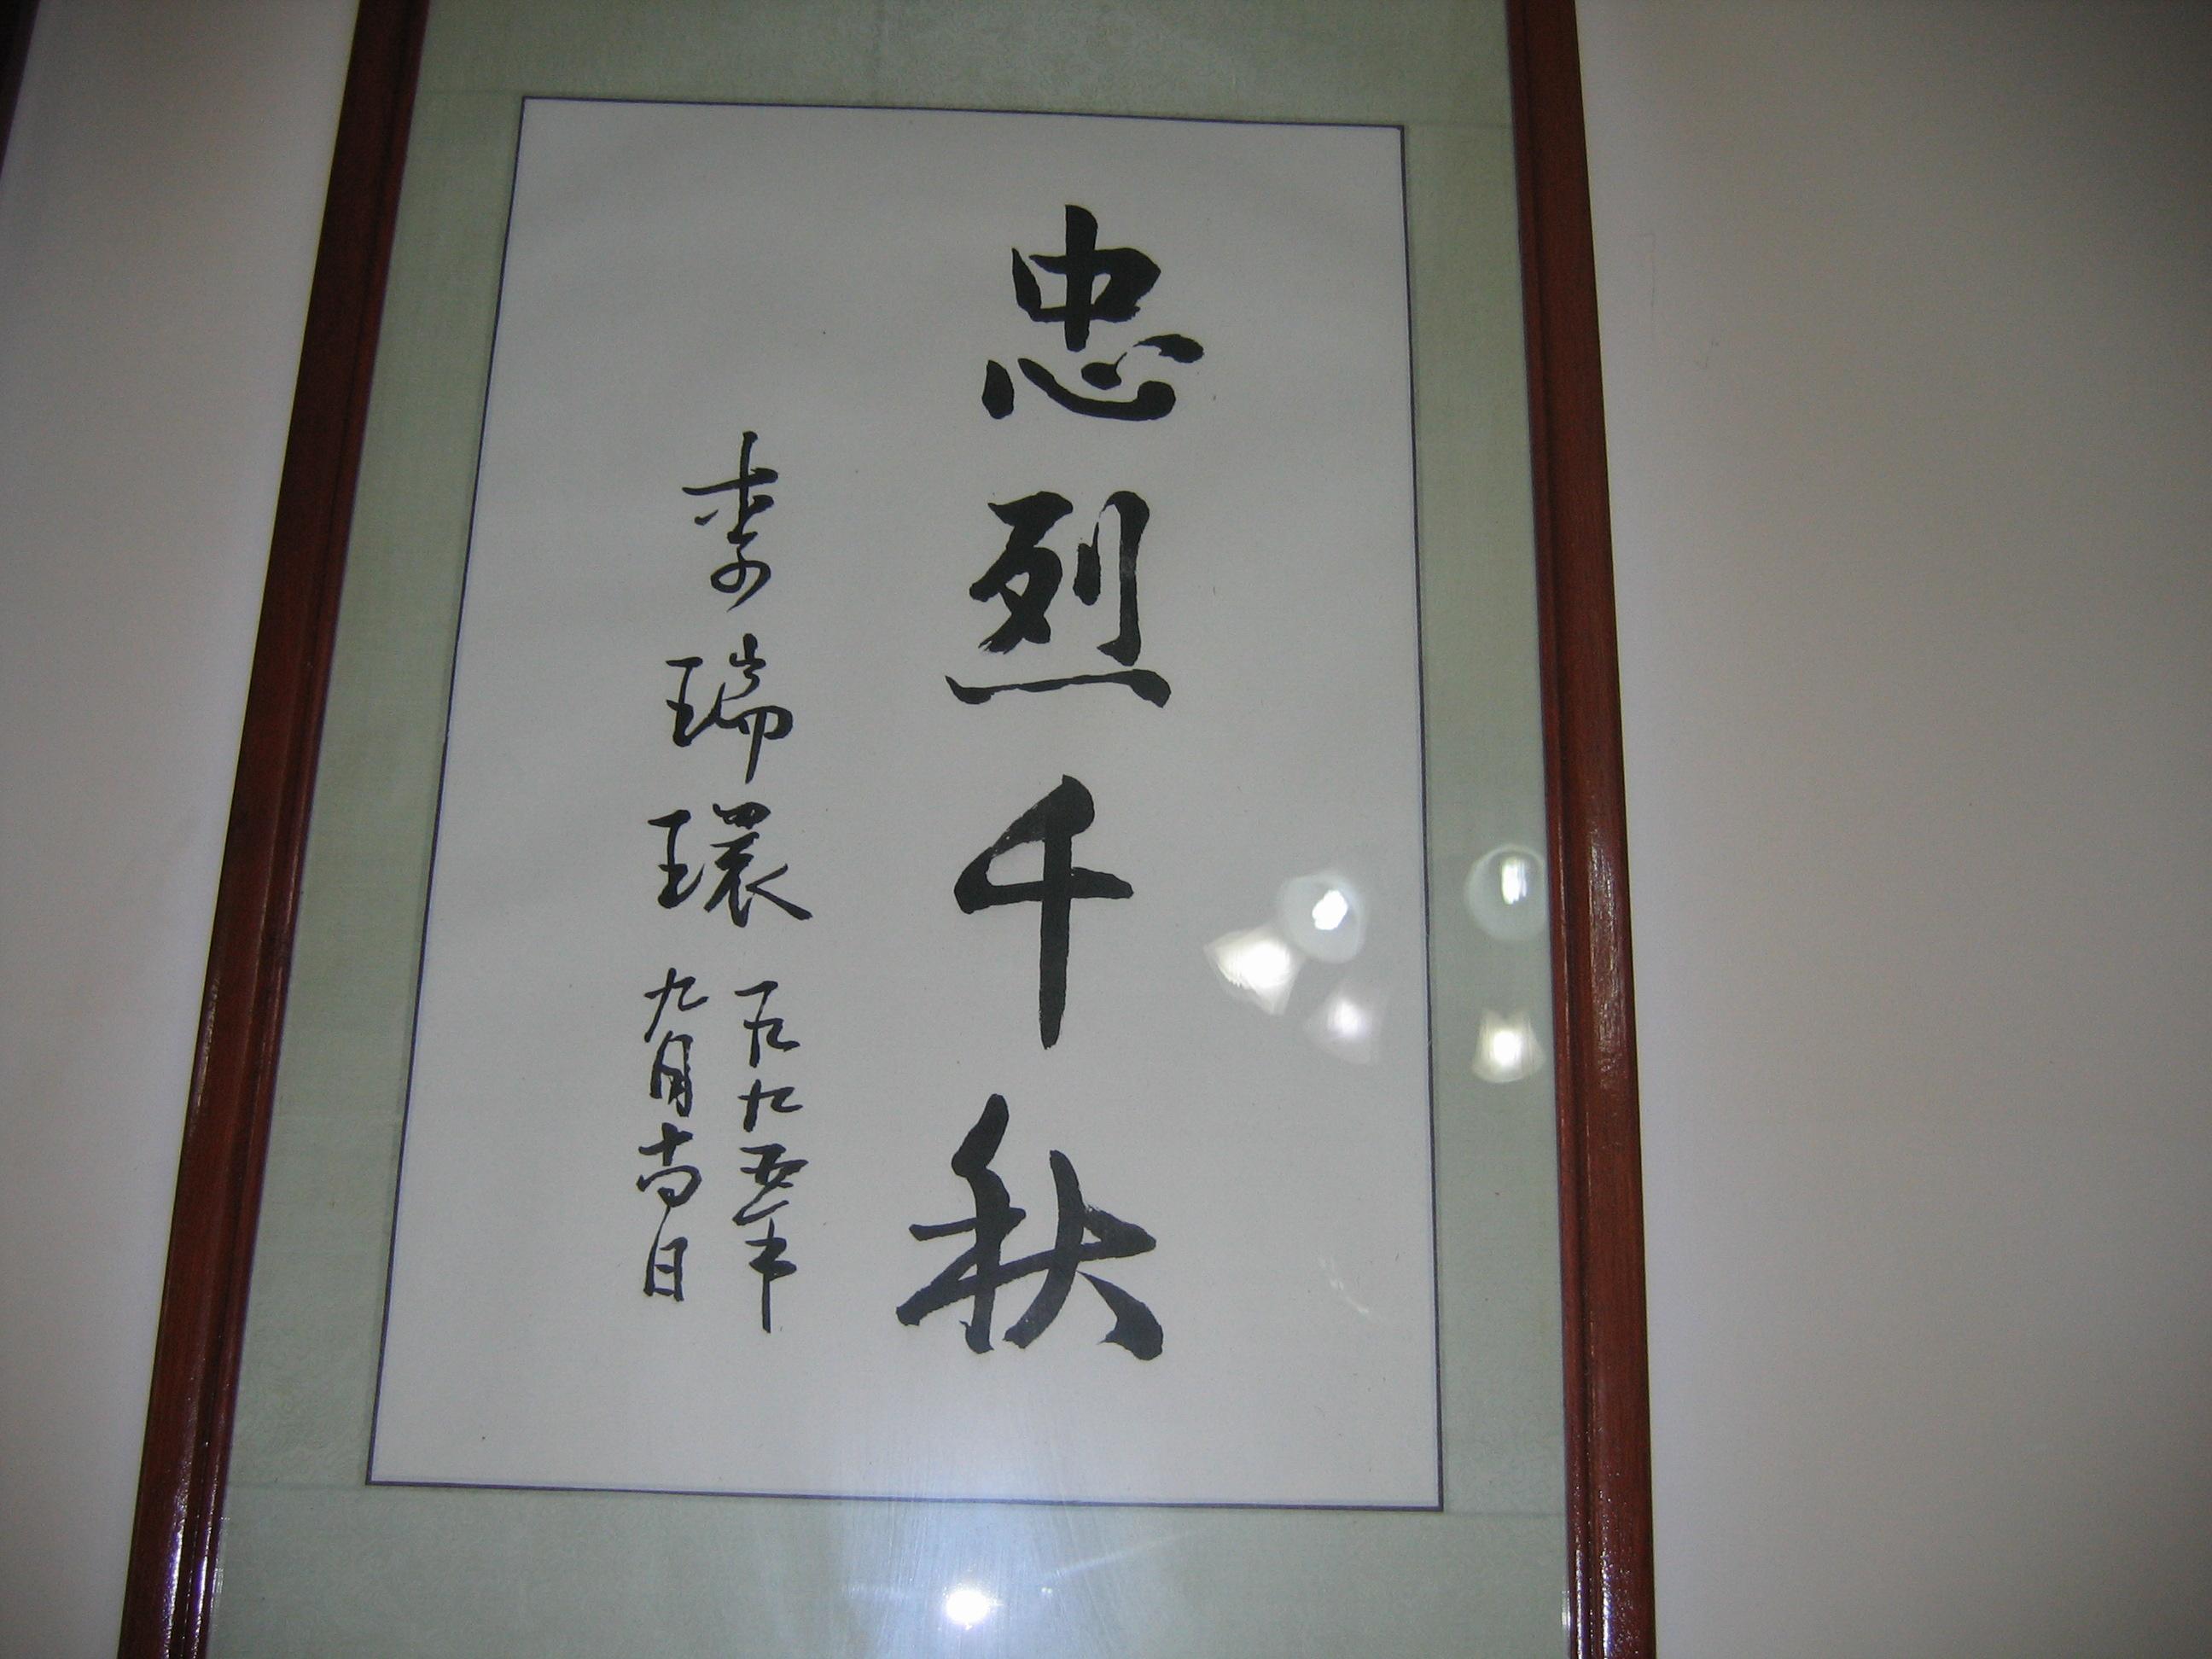 忠烈千秋
李瑞環
一九九五年
九月十四日